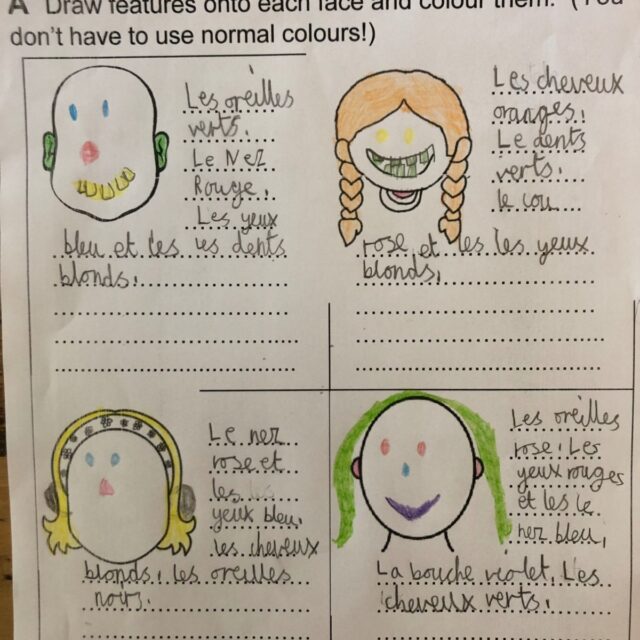 A Draw features onto each face and colour them. (You
don't have to use normal colours!)
Les oreilles
verts.
Le Nez
Rouge,
Les yeux
bleu et les les dents
blonds,
Les cheveux
oranges,
Le dents
verts.
le cou
rose et les les yeux
blonds,
Le nez
rose et
les
yeux bleu,
les cheveux
blonds, les oreilles
noirs.
Les oreilles
rose, Les
yeux rouges
et les le
nez bleu,
La bouche violet, Les
cheveux verts.